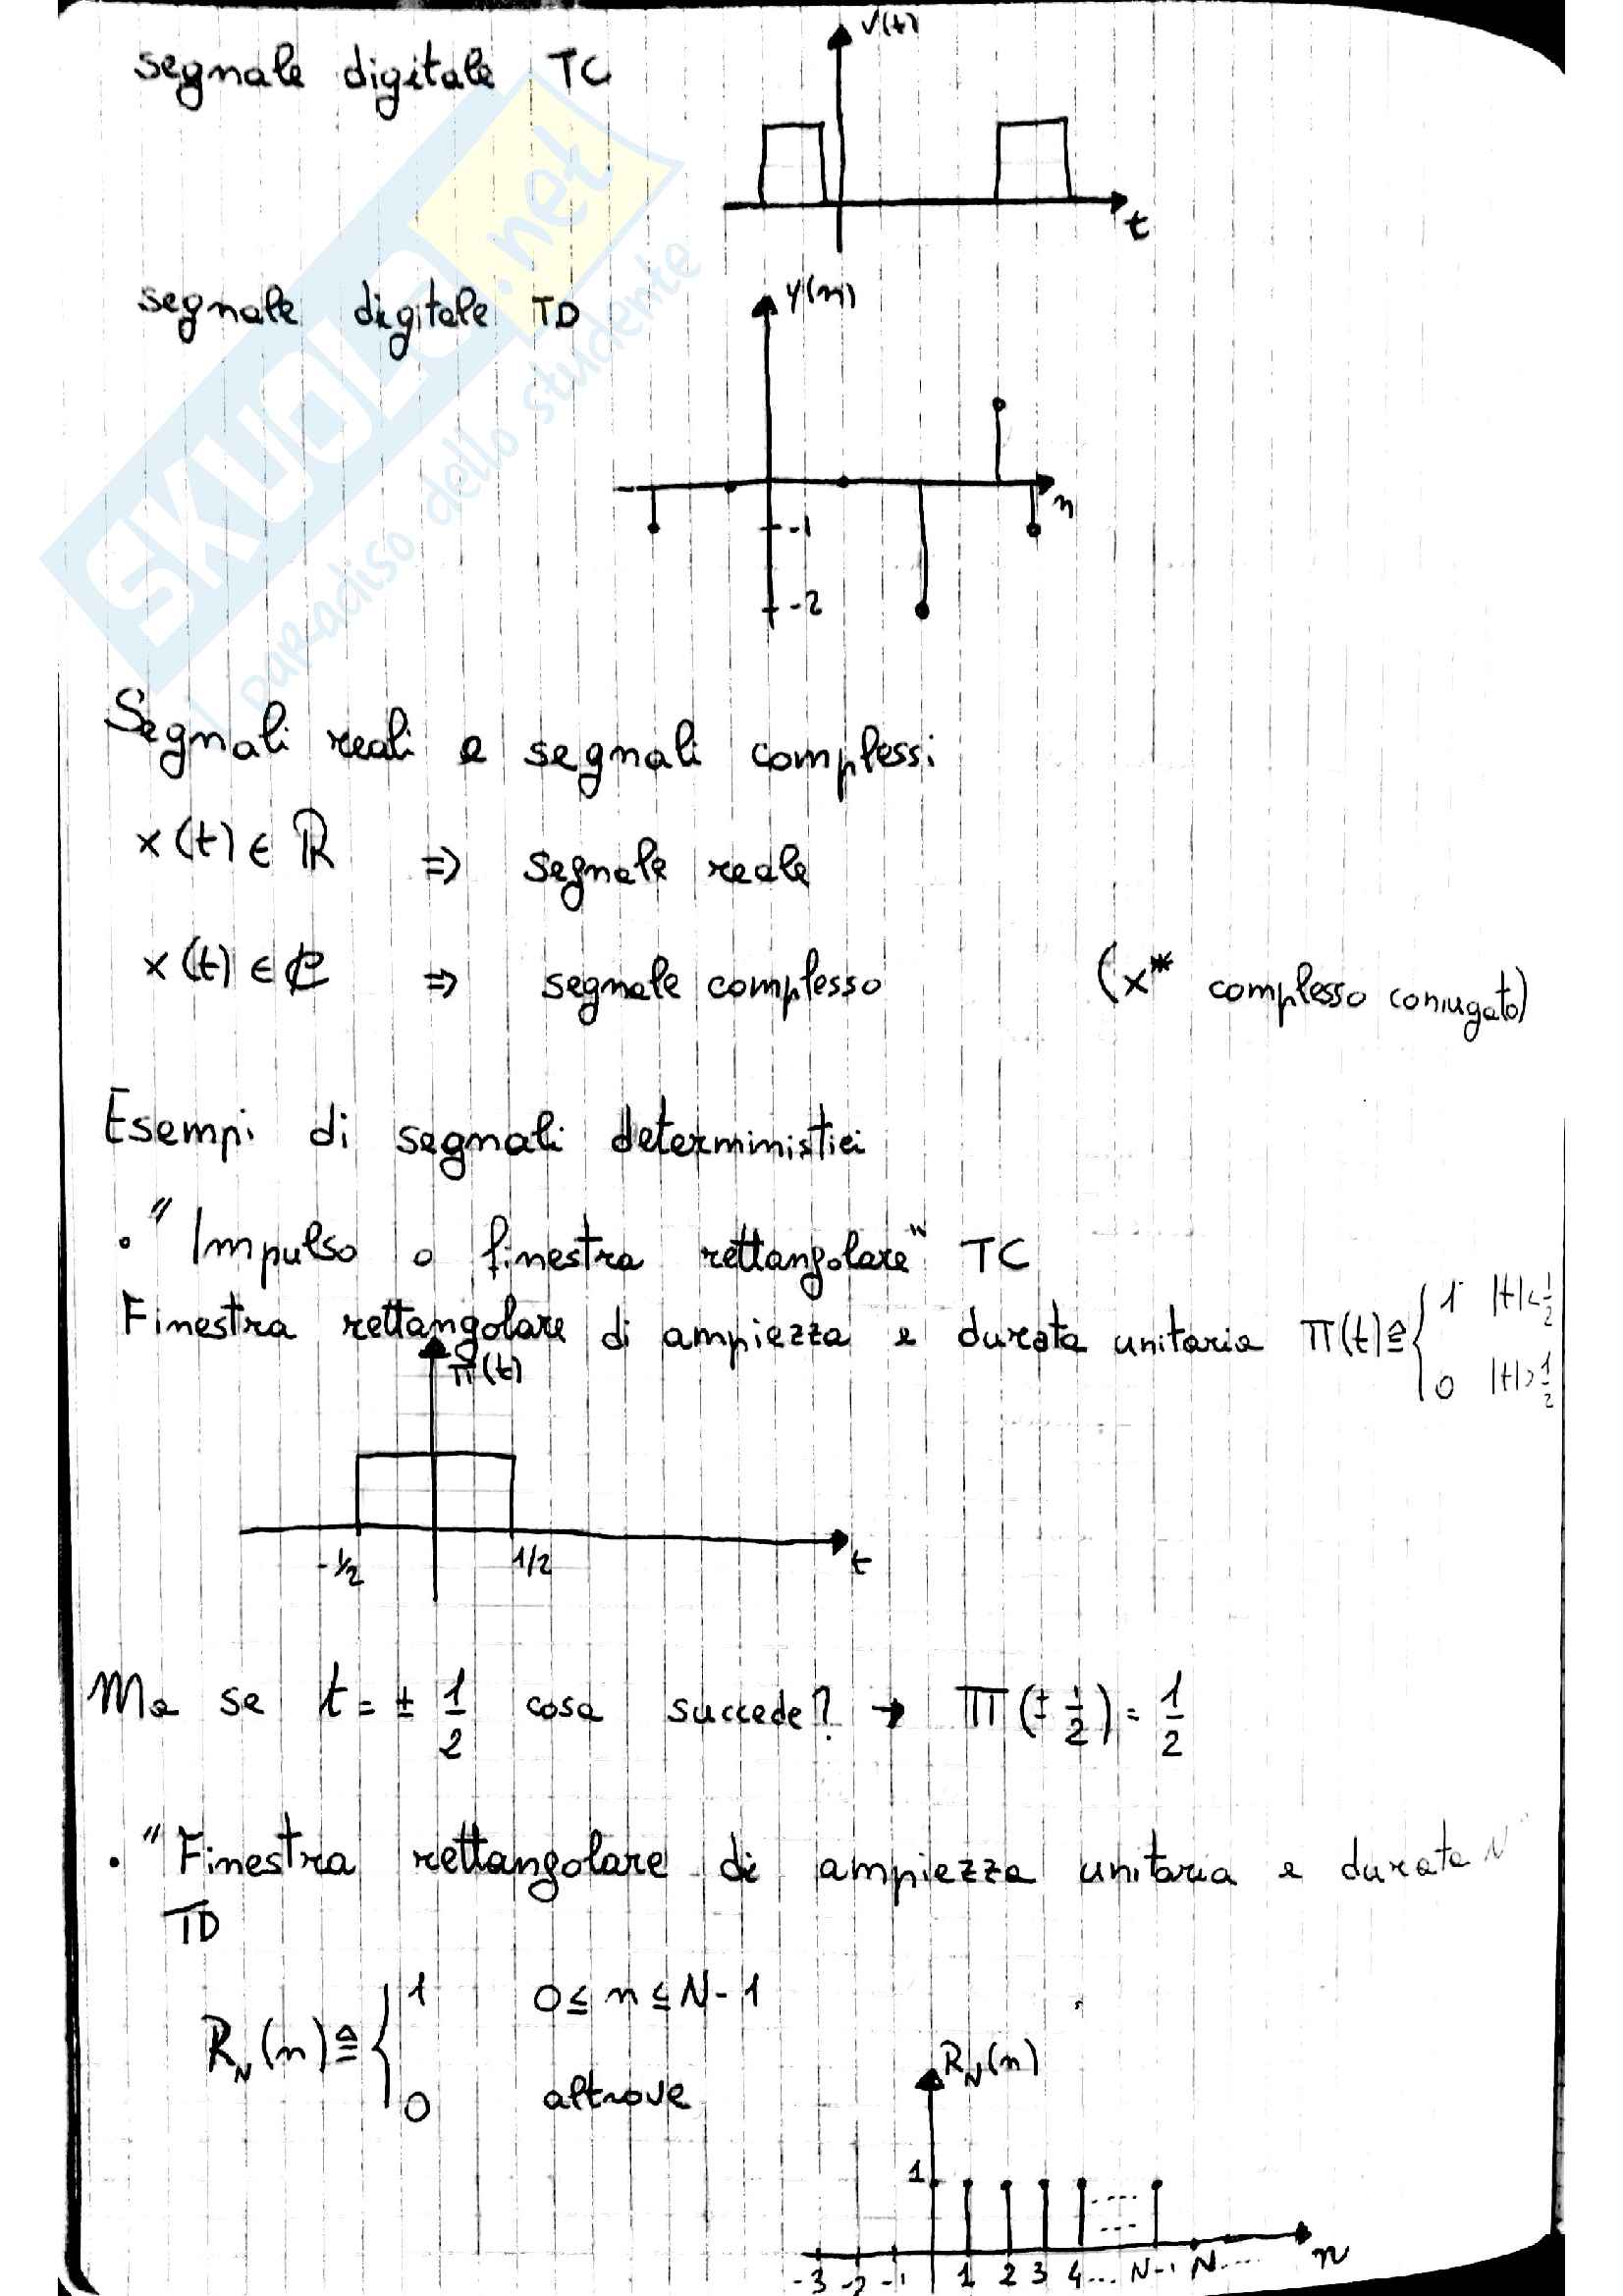 segnale digitale TC
v(t)
t
segnale digitale TD
y(n)
n
-1
-2
SKUOLA.net
il paradiso dello studente
Segnali reali e segnali complessi
x(t) ∈ ℝ ⇒ segnale reale
x(t) ∈ ℂ ⇒ segnale complesso (x* complesso coniugato)
Esempi di segnali deterministici
• "Impulso o finestra rettangolare" TC
Finestra rettangolare di ampiezza e durata unitaria Π(t) ≙ { 1 |t|<1/2
0 |t|>1/2
Π(t)
-1/2 1/2 t
Ma se t = ± 1/2 cosa succede? → Π(± 1/2) = 1/2
• "Finestra rettangolare di ampiezza unitaria e durata N"
TD
R_N(n) ≙ { 1 0 ≤ n ≤ N-1
0 altrove
R_N(n)
1
-3 -2 -1 1 2 3 4... N-1 N.... n